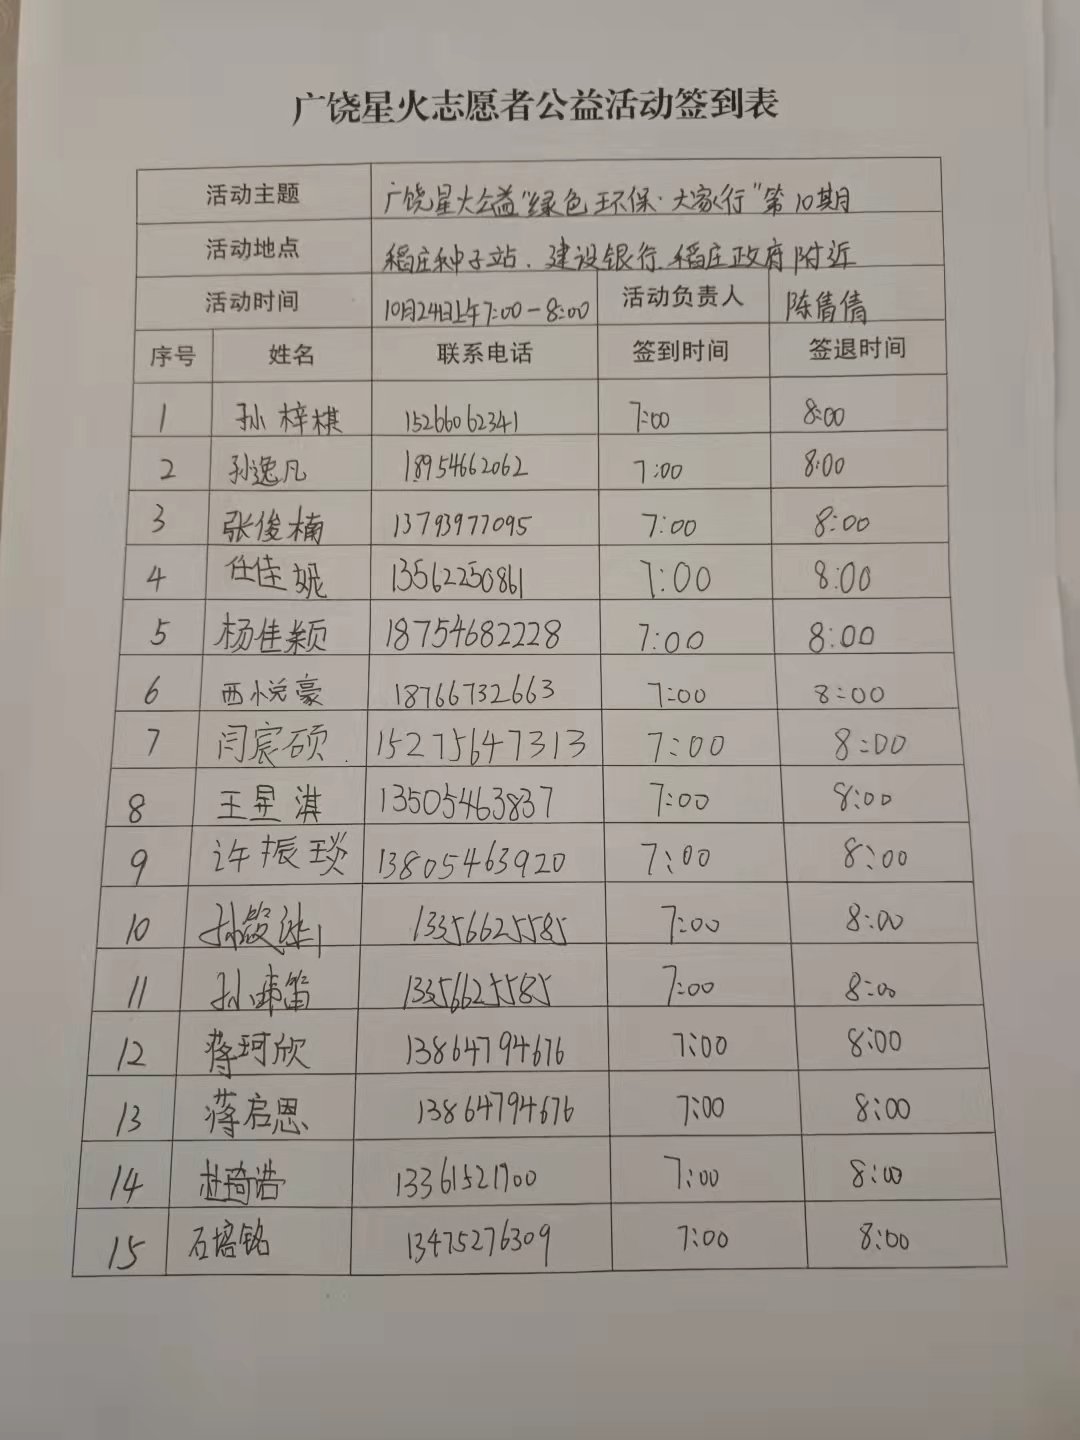 广饶星火志愿者公益活动签到表
活动主题 广饶星火公益“绿色环保·大家行”第10期
活动地点 稻庄种子站、建设银行、稻庄政府附近
活动时间 10月24日上午7:00-8:00 活动负责人 陈倩倩
序号 姓名 联系电话 签到时间 签退时间
1 孙梓棋 15266062341 7:00 8:00
2 孙逸凡 18954662062 7:00 8:00
3 张俊楠 13793977095 7:00 8:00
4 任佳妮 13562250861 7:00 8:00
5 杨佳颖 18754682228 7:00 8:00
6 西悦豪 18766732663 7:00 8:00
7 闫宸硕 15275647313 7:00 8:00
8 王昱淇 13505463837 7:00 8:00
9 许振琰 13805463920 7:00 8:00
10 孙 13356625585 7:00 8:00
11 孙 笛 13356625585 7:00 8:00
12 蒋珂欣 13864794676 7:00 8:00
13 蒋启恩 13864794676 7:00 8:00
14 杜琦浩 13361521700 7:00 8:00
15 石培铭 13475276309 7:00 8:00